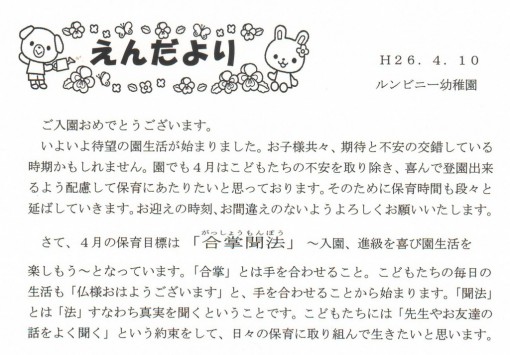 えんだより
H26．4．10
ルンビニー幼稚園
ご入園おめでとうございます。
いよいよ待望の園生活が始まりました。お子様共々、期待と不安の交錯している
時期かもしれません。園でも４月はこどもたちの不安を取り除き、喜んで登園出来
るよう配慮して保育にあたりたいと思っております。そのために保育時間も段々と
延ばしていきます。お迎えの時刻、お間違えのないようよろしくお願いいたします。
がっしょうもんぽう
さて、４月の保育目標は「合掌聞法」～入園、進級を喜び園生活を
楽しもう～となっています。「合掌」とは手を合わせること。こどもたちの毎日の
生活も「仏様おはようございます」と、手を合わせることから始まります。「聞法」
とは「法」すなわち真実を聞くということです。こどもたちには「先生やお友達の
話をよく聞く」という約束をして、日々の保育に取り組んで生きたいと思います。